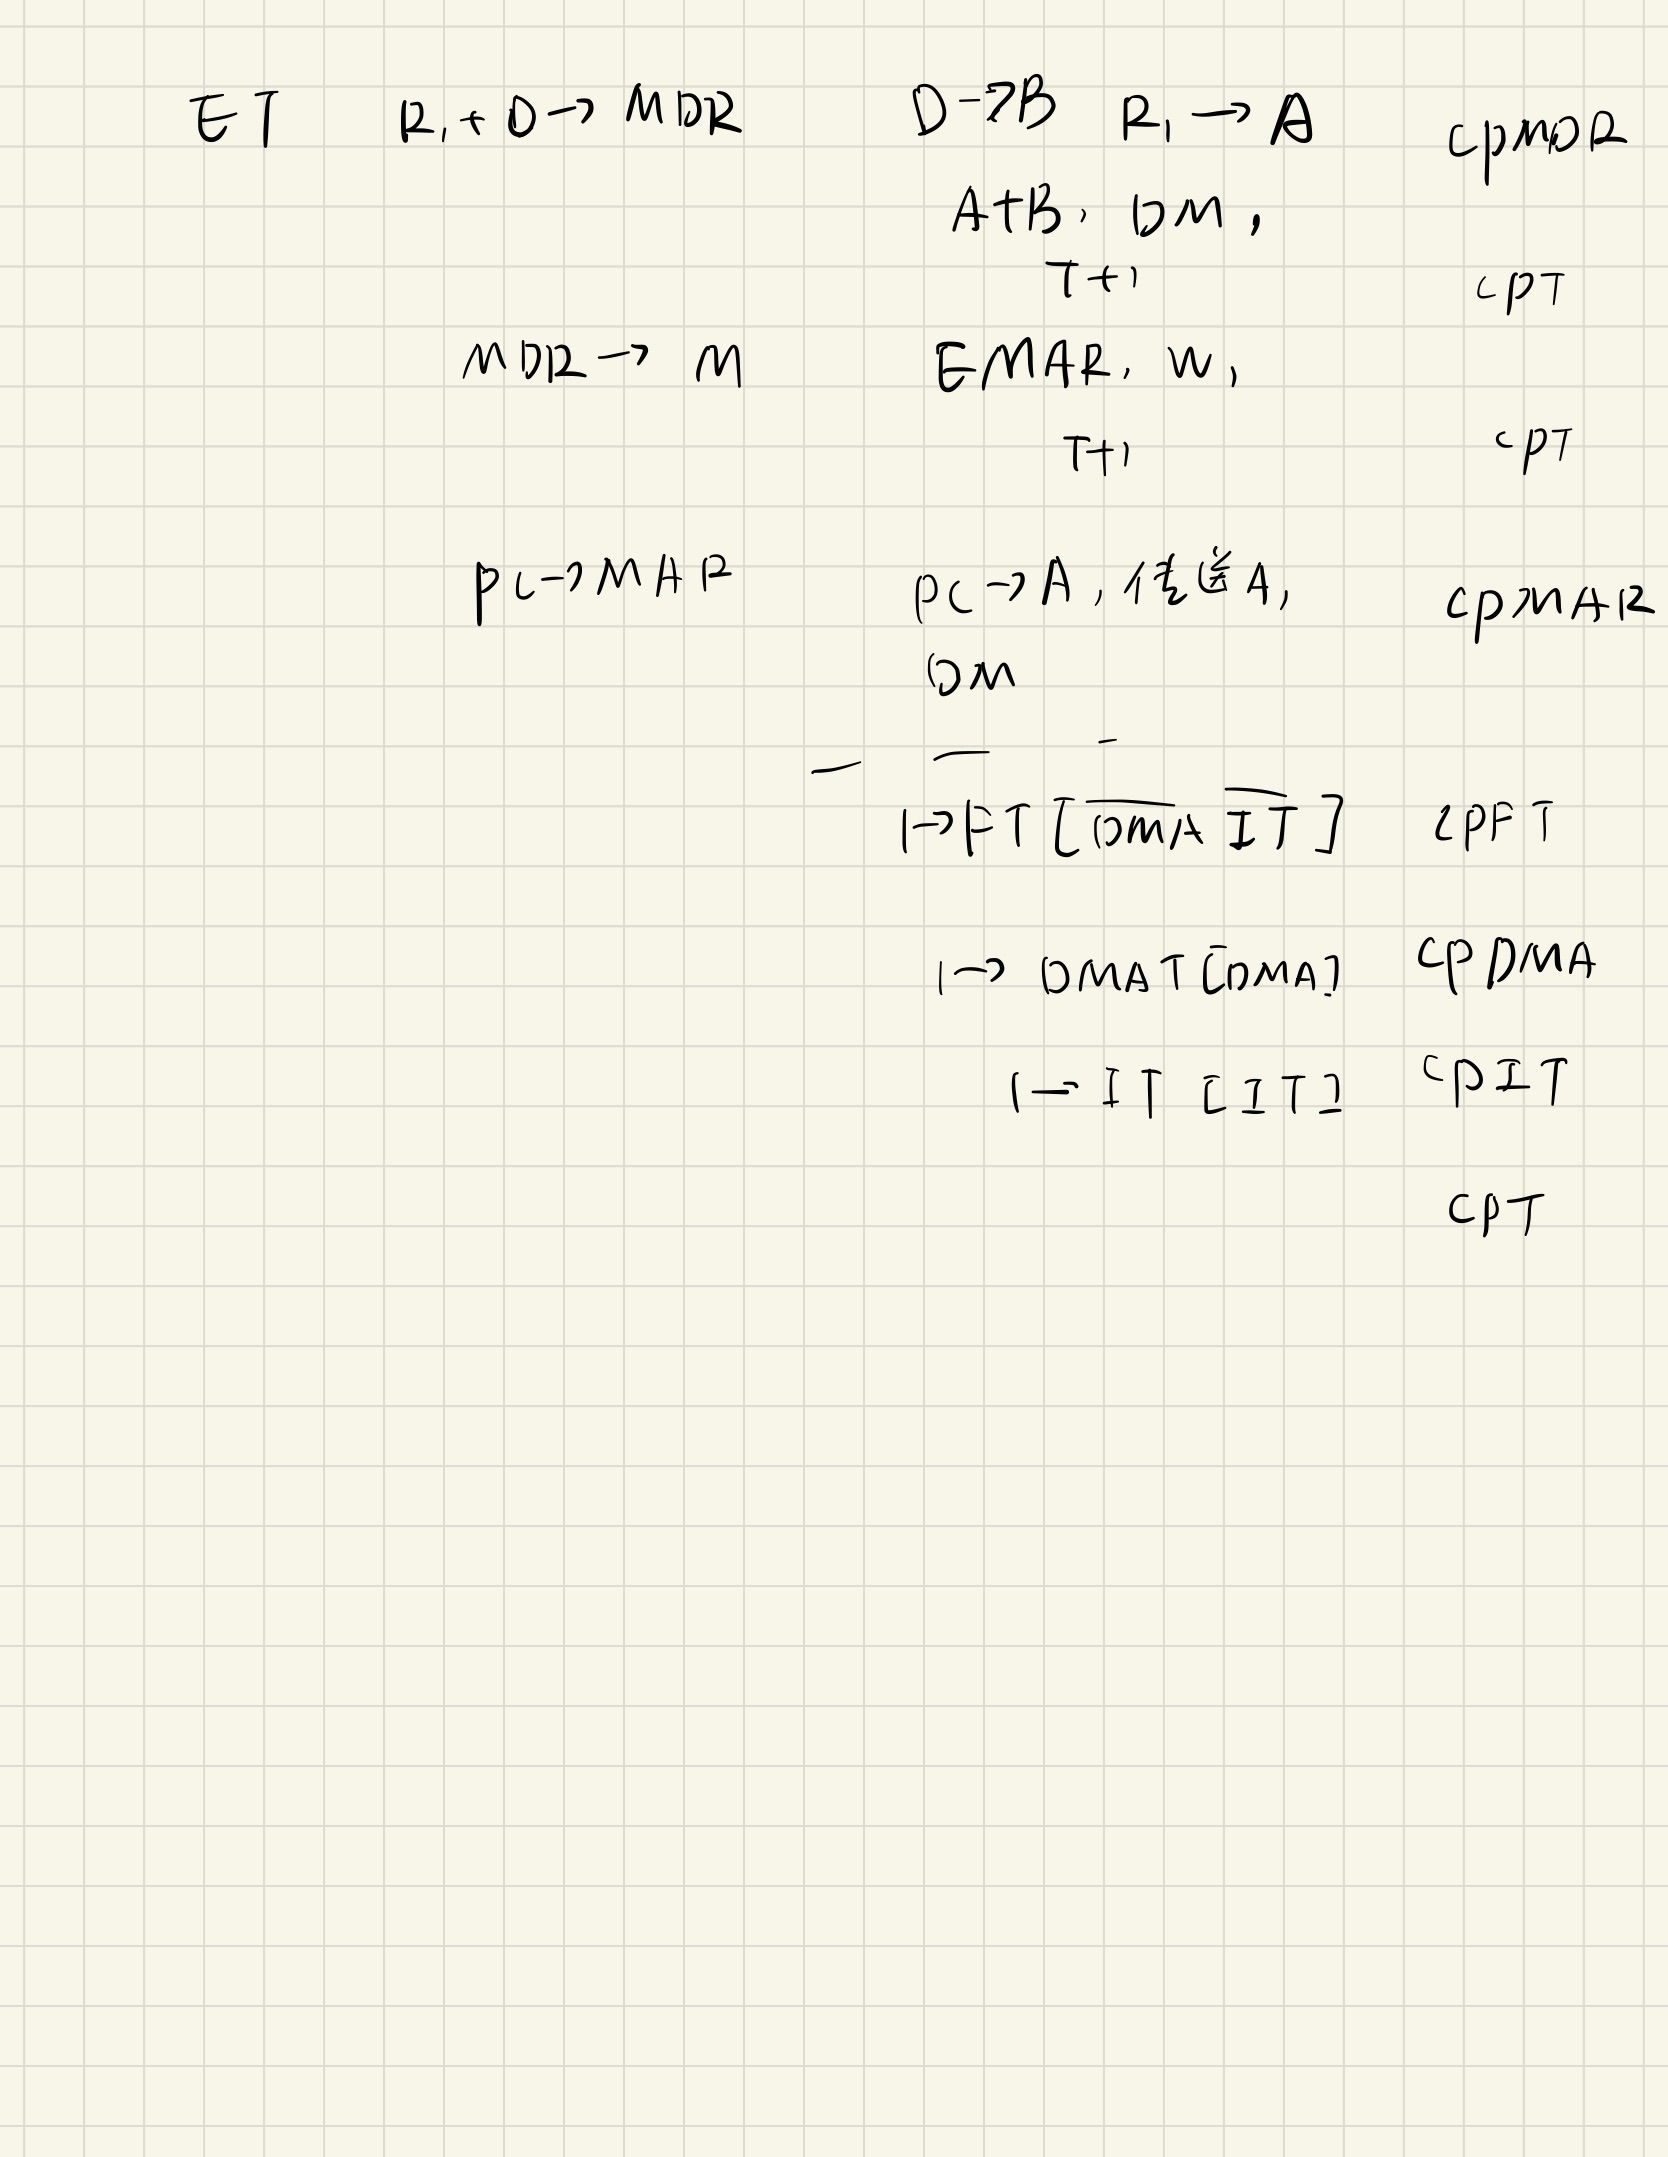 ET R₁+D→MDR D→B R₁→A CPMDR
A+B, DM,
T+1 CPT
MDR→M EMAR, W,
T+1 CPT
PC→MAR PC→A, 传送A, CPMAR
DM
1→FT[D̅M̅A̅ I̅T̅] CPFT
1→DMAT[DMA] CPDMA
1→IT[IT] CPIT
CPT